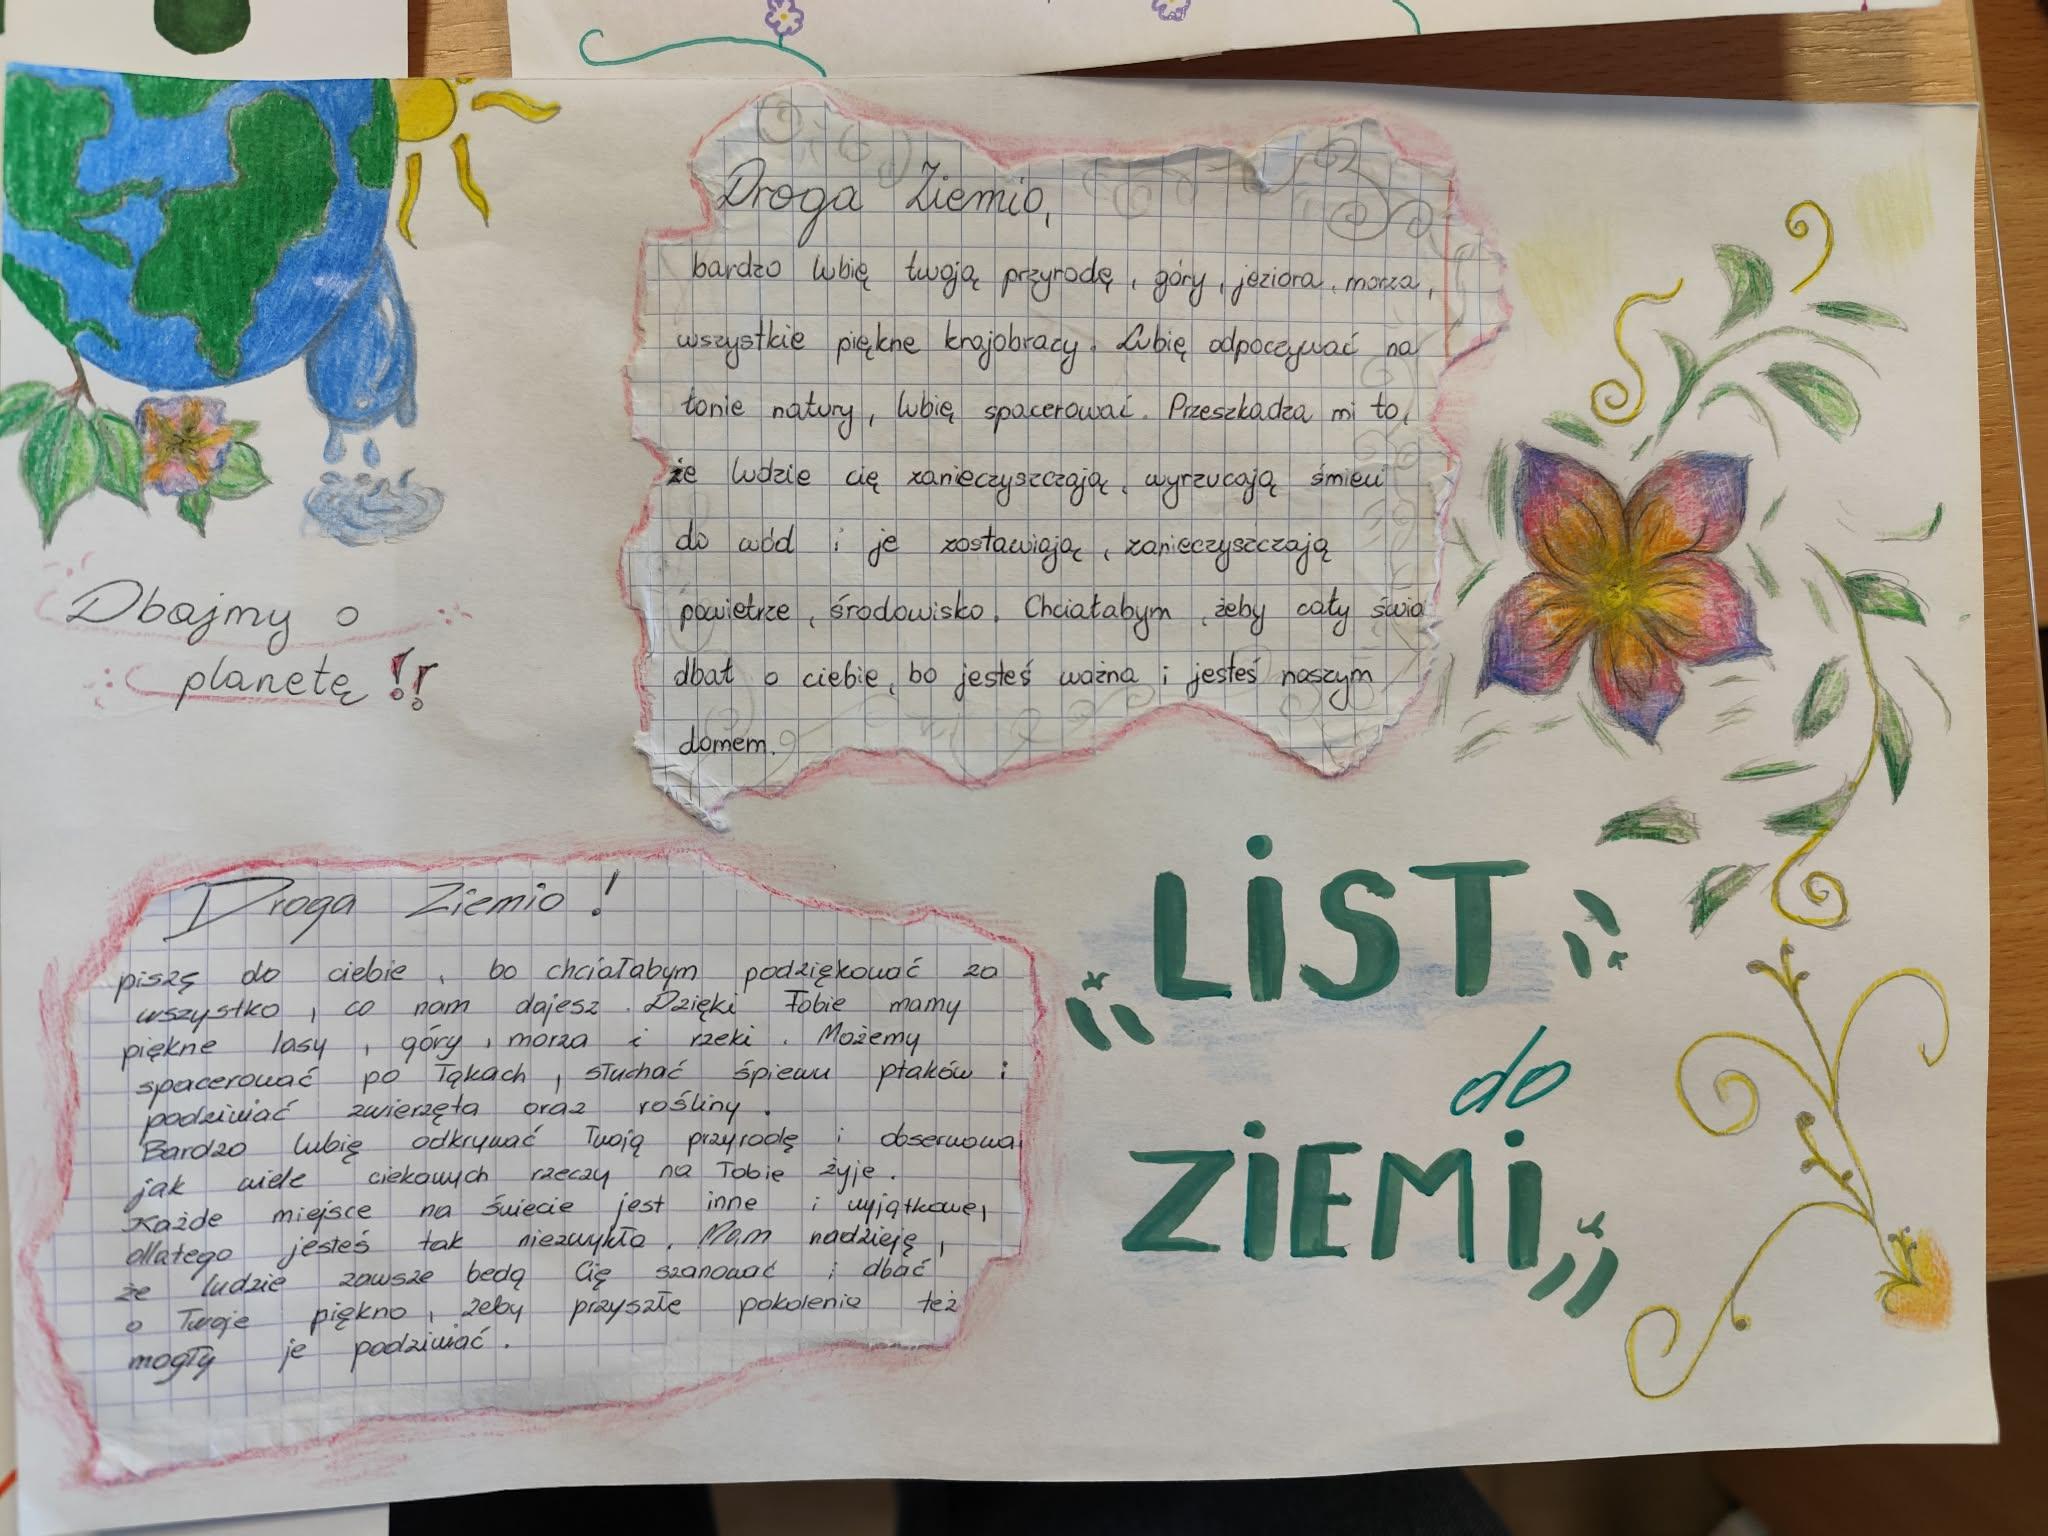 Droga Ziemio,
bardzo lubię twoją przyrodę, góry, jeziora, morza,
wszystkie piękne krajobrazy. Lubię odpoczywać na
łonie natury, lubię spacerować. Przeszkadza mi to,
że ludzie cię zanieczyszczają, wyrzucają śmieci
do wód i je zostawiają, zanieczyszczają
powietrze, środowisko. Chciałabym, żeby cały świa
dbał o ciebie, bo jesteś ważna i jesteś naszym
domem.
Dbajmy o
planetę!!
Droga Ziemio!
piszę do ciebie, bo chciałabym podziękować za
wszystko, co nam dajesz. Dzięki Tobie mamy
piękne lasy, góry, morza i rzeki. Możemy
spacerować po łąkach, słuchać śpiewu ptaków i
podziwiać zwierzęta oraz rośliny.
Bardzo lubię odkrywać Twoją przyrodę i obserwowa
jak wiele ciekawych rzeczy na Tobie żyje.
Każde miejsce na świecie jest inne i wyjątkowe,
dlatego jesteś tak niezwykła. Mam nadzieję,
że ludzie zawsze bedą Cię szanować i dbać
o Twoje piękno, żeby przyszłe pokolenia też
mogły je podziwiać.
"LIST
do
ZIEMI"